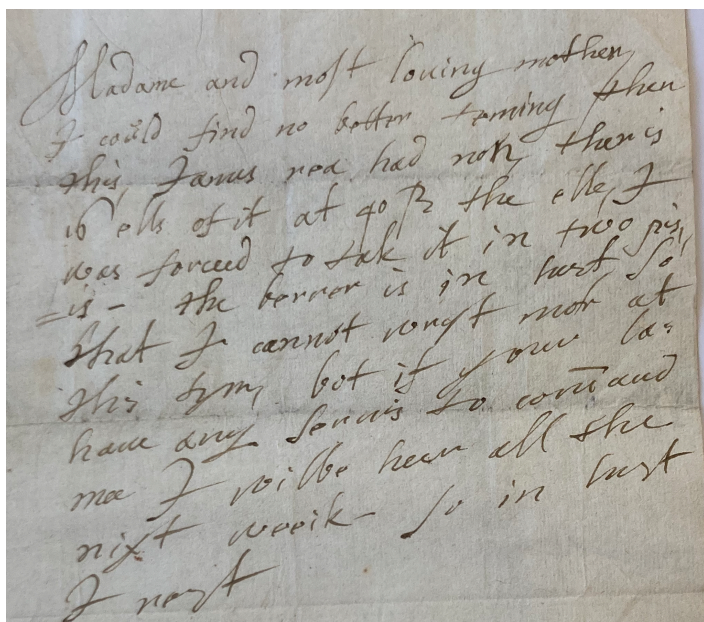 Madame and most loving mother
I could find no better teming then
this, Jamis rea had non, ther is
16 ells of it at 40 ß the elle, I
was forced to tak it in two pis,
=is - the berrer is in hast so
that I cannot wryt mor at
this tym, bot if your la:
haue any seruis to command
mee I wilbe heer all the
nixt weeik - so in hast
I rest